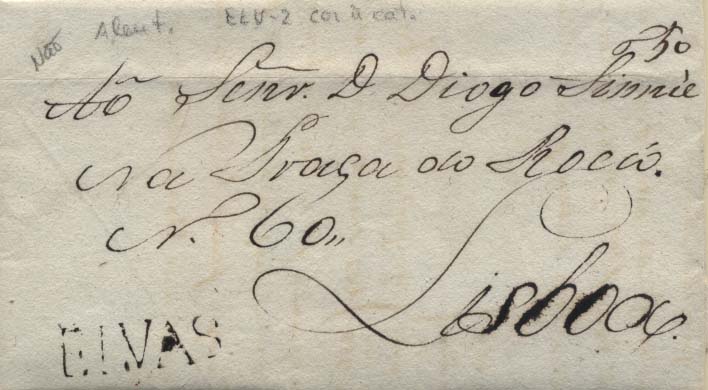 Não Alent. ELV-2 cor ñ cat.
50
Ao Senr. D Diogo
Na Praça do Rocio.
N. 60,,
Lisboa.
ELVAS